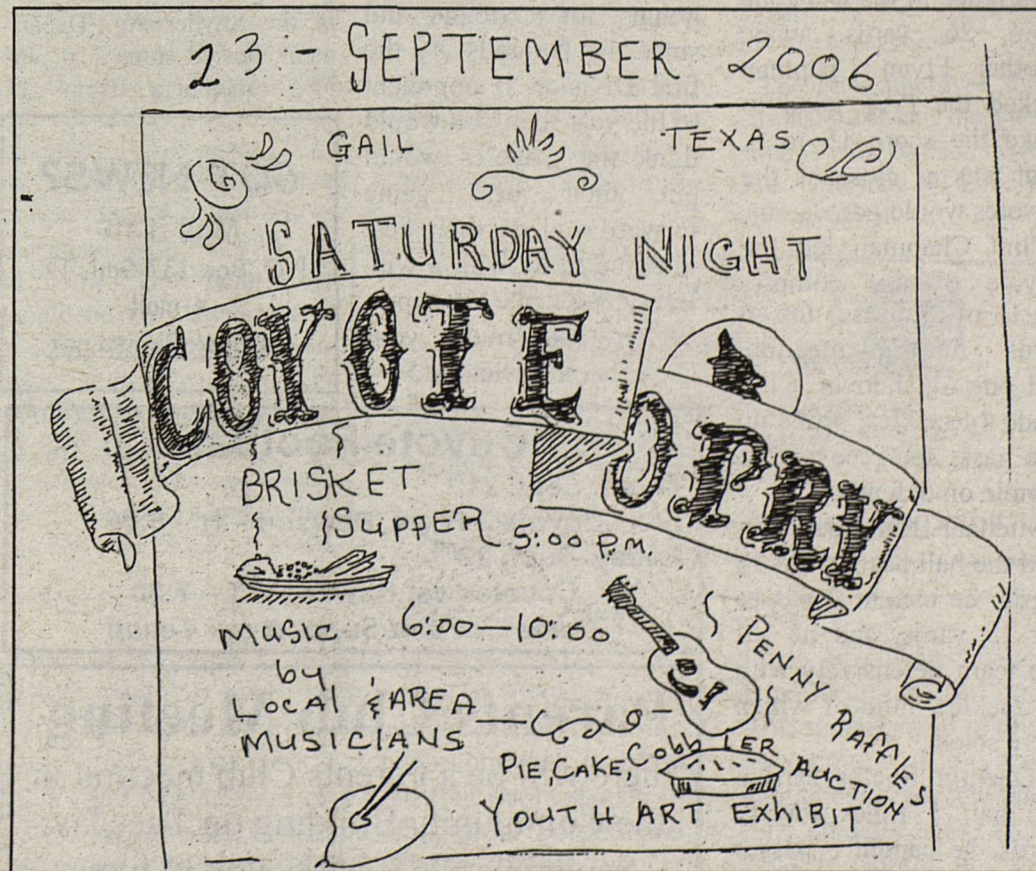 23 - SEPTEMBER 2006
GAIL TEXAS
SATURDAY NIGHT
COYOTE
OPRY
BRISKET
SUPPER 5:00 P.M.
MUSIC 6:00—10:00
by
LOCAL & AREA
MUSICIANS
PENNY
RAFFLES
PIE, CAKE, CobbLER AUCTION
YOUTH ART EXHIBIT